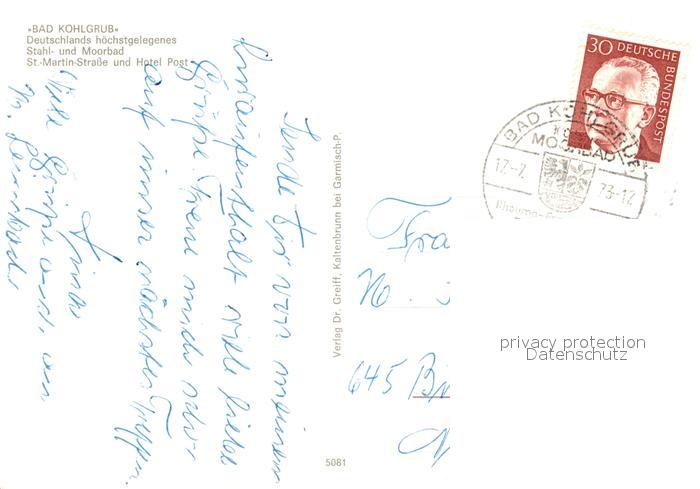 »BAD KOHLGRUB«
Deutschlands höchstgelegenes
Stahl- und Moorbad
St.-Martin-Straße und Hotel Post
Sende Dir von meinem
Kuraufenthalt viele liebe
Grüße. Freue mich schon
auf unser nächstes Treffen.
Viele Grüße auch an
Verlag Dr. Greiff, Kaltenbrunn bei Garmisch-P.
5081
30 DEUTSCHE BUNDESPOST
BAD KOHLGRUB
MOORBAD
17.-7. 73-12
Rheuma-
Fra
N.
645
privacy protection
Datenschutz